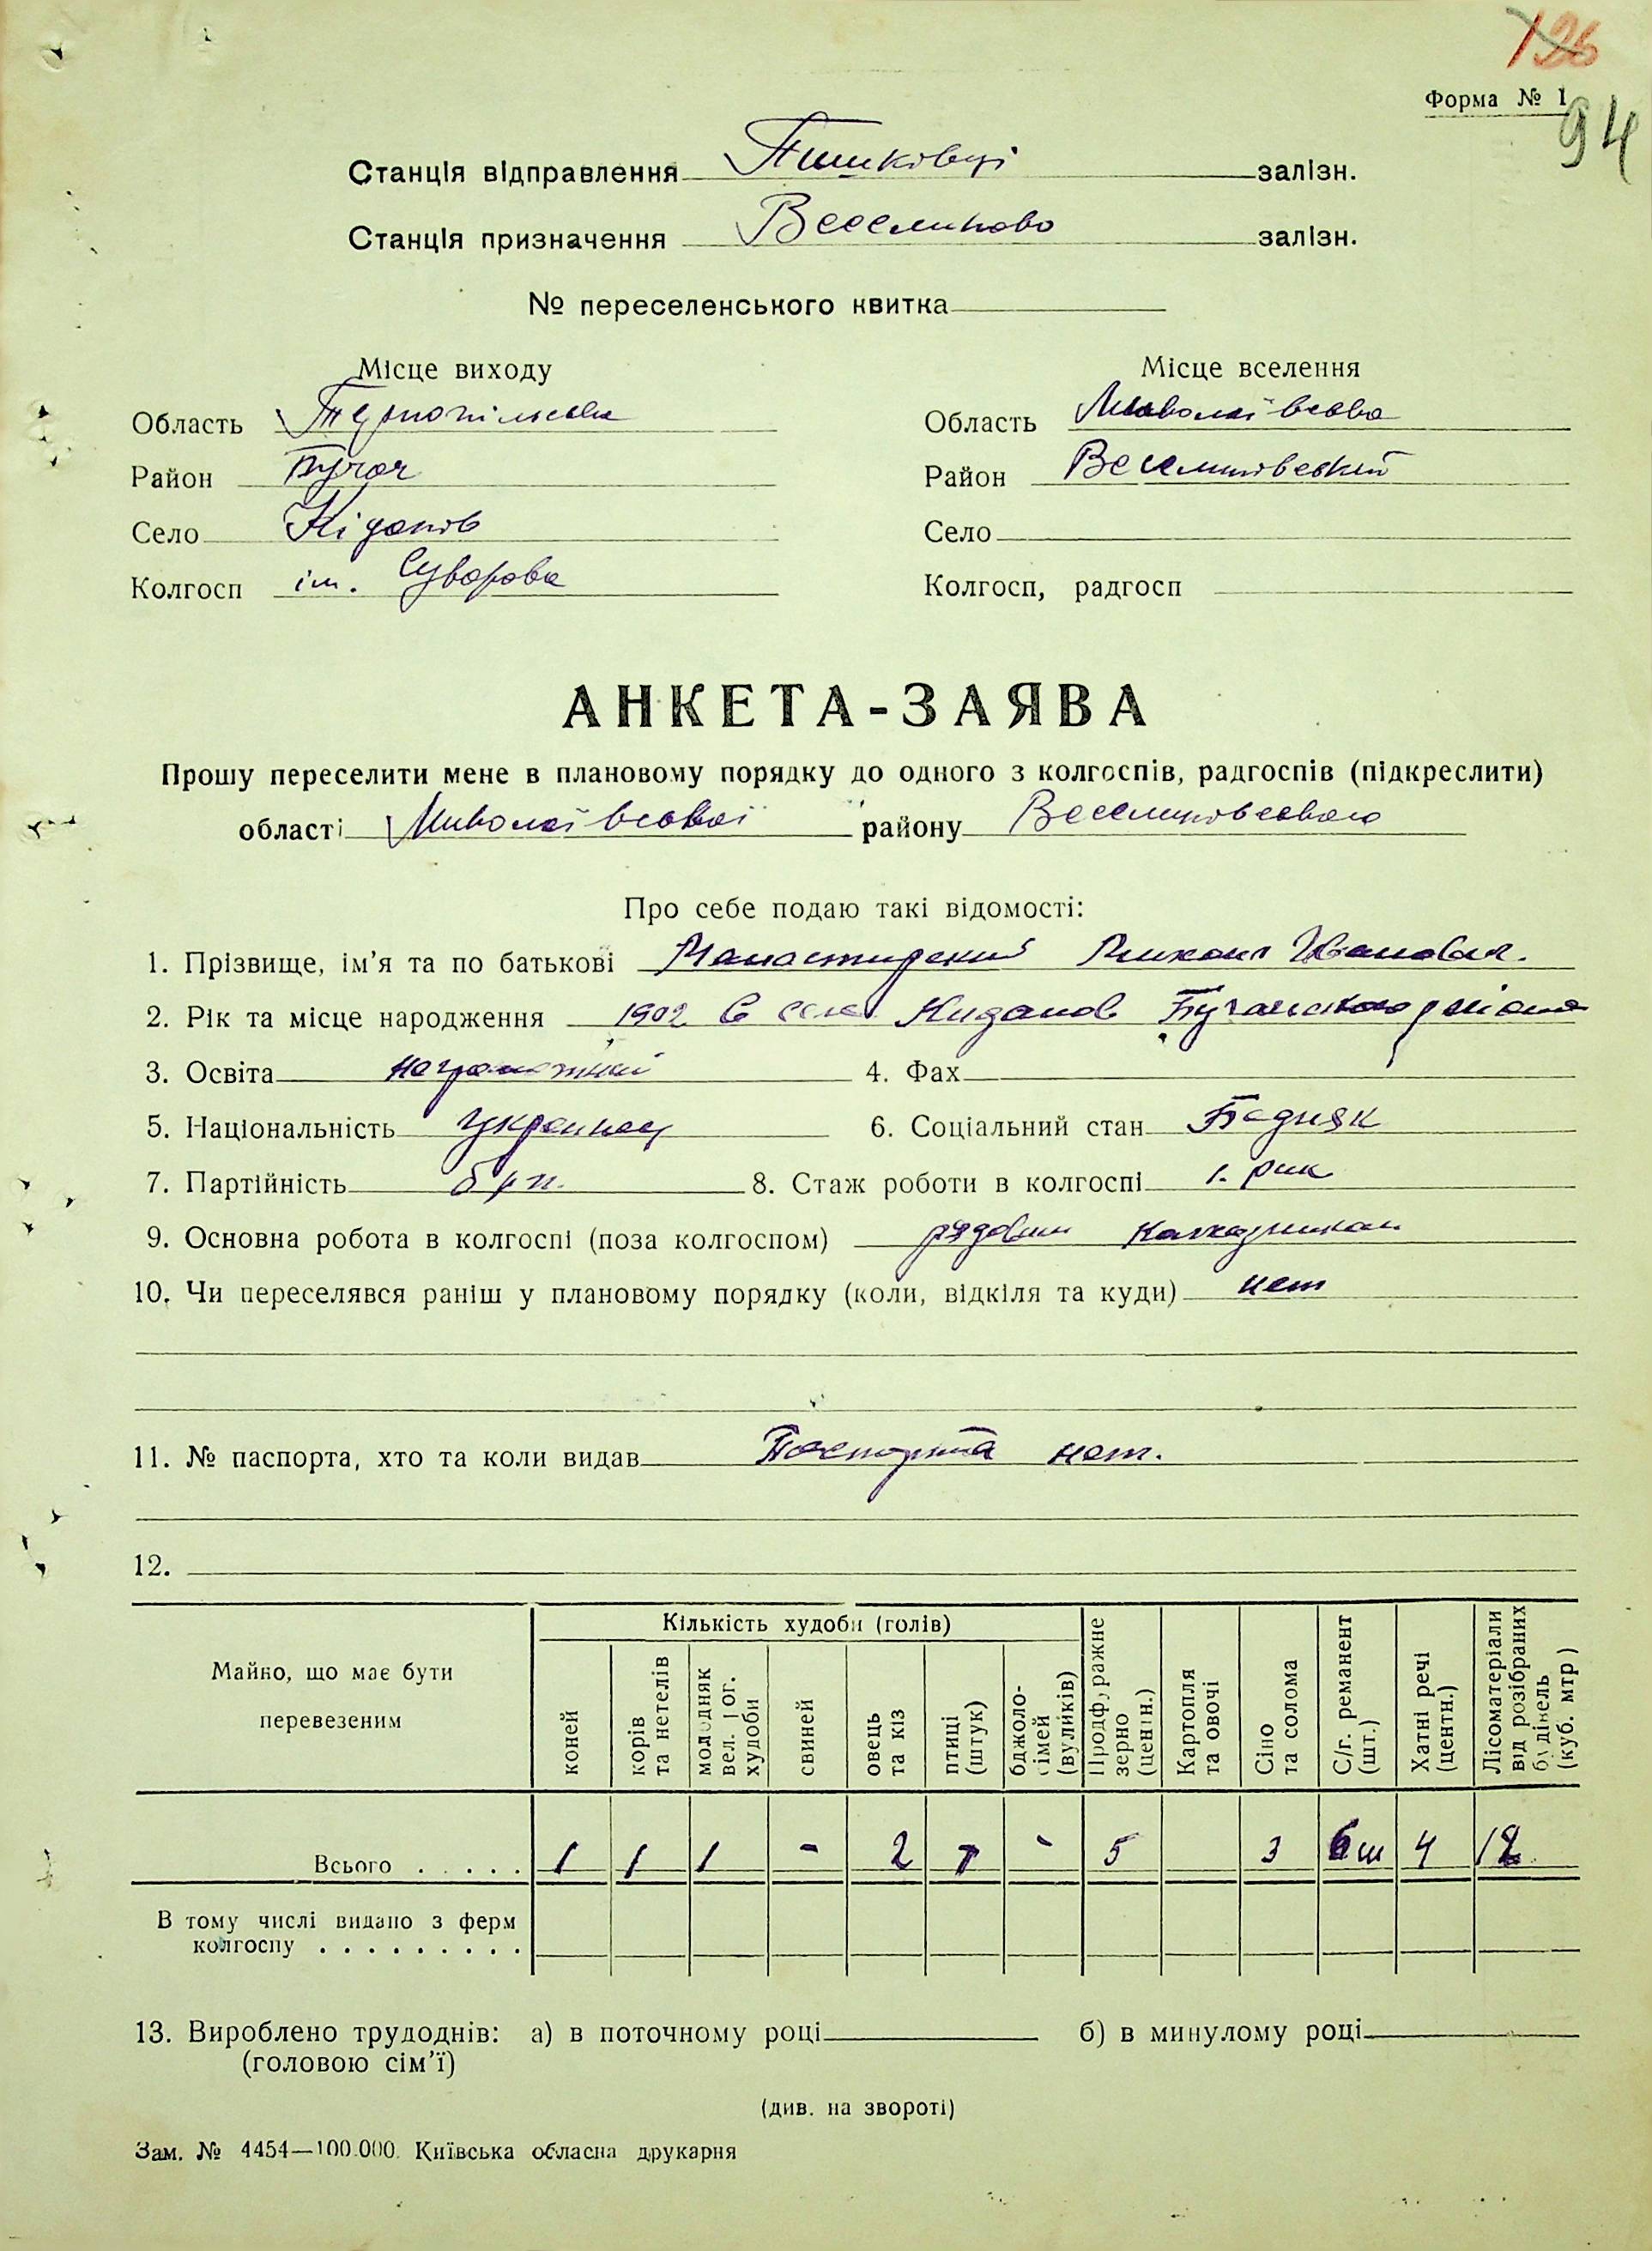 126
Форма № 1
94
Станція відправлення Пишківці залізн.
Станція призначення Веселиново залізн.
№ переселенського квитка
Місце виходу
Місце вселення
Область Тернопільська
Область Миколаївська
Район Бучач
Район Веселинівський
Село Кіданів
Село
Колгосп ім. Суворова
Колгосп, радгосп
АНКЕТА-ЗАЯВА
Прошу переселити мене в плановому порядку до одного з колгоспів, радгоспів (підкреслити)
області Миколаївської району Веселинівського
Про себе подаю такі відомості:
1. Прізвище, ім'я та по батькові Манастирский Михаил Иванович.
2. Рік та місце народження 1902 в селе Киданов Бучачского района
3. Освіта неграмотный 4. Фах
5. Національність украинец 6. Соціальний стан Бедняк
7. Партійність б/п. 8. Стаж роботи в колгоспі 1. рик
9. Основна робота в колгоспі (поза колгоспом) рядовым
10. Чи переселявся раніш у плановому порядку (коли, відкіля та куди) нет
11. № паспорта, хто та коли видав Паспорта нет.
12.
Майно, що має бути перевезеним
Кількість худоби (голів)
коней
корів та нетелів
молодняк вел. рог. худоби
свиней
овець та кіз
птиці (штук)
бджоло-сімей (вуликів)
Продф,ражне зерно (центн.)
Картопля та овочі
Сіно та солома
С/г. реманент (шт.)
Хатні речі (центн.)
Лісоматеріали від розібраних будівель (куб. мтр)
Всього . . . . . 1 1 1 - 2 - 5 3 6 ш 4 12
В тому числі видано з ферм
колгоспу . . . . . . . . .
13. Вироблено трудоднів: а) в поточному році б) в минулому році
(головою сім'ї)
(див. на звороті)
Зам. № 4454—100.000. Київська обласна друкарня